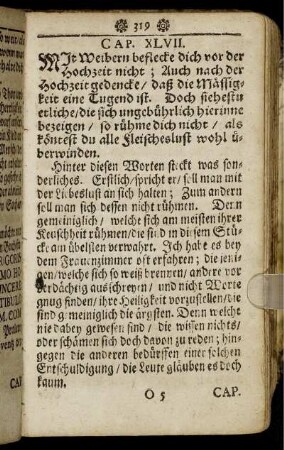 319
CAP. XLVII.
MIt Weibern beflecke dich vor der
Hochzeit nicht; Auch nach der
Hochzeit gedencke/ daß die Mässig-
keit eine Tugend ist. Doch siehestu
etliche/ die sich ungebührlich hierinne
bezeigen/ so rühme dich nicht/ als
köntest du alle Fleischeslust wohl ü-
berwinden.
Hinter diesen Worten stickt was son-
derliches. Erstlich/ spricht er/ soll man mit
der Liebeslust an sich halten; Zum andern
soll man sich dessen nicht rühmen. Denn
gemeiniglich/ welche sich am meisten ihrer
Keuschheit rühmen/ die sind in diesem Stü-
cke am übelsten verwahrt. Ich habe es bey
dem Frauenzimmer oft erfahren; die jeni-
gen/ welche sich so weiß brennen/ andere vor
verdächtig ausschreyen/ und nicht Worte
gnug finden/ ihre Heiligkeit vorzustellen/ die
sind gemeiniglich die ärgsten. Denn welche
nie dabey gewesen sind/ die wissen nichts/
oder schämen sich doch davon zu reden; hin-
gegen die anderen bedürffen einer solchen
Entschuldigung/ die Leute gläuben es doch
kaum.
O 5 CAP.